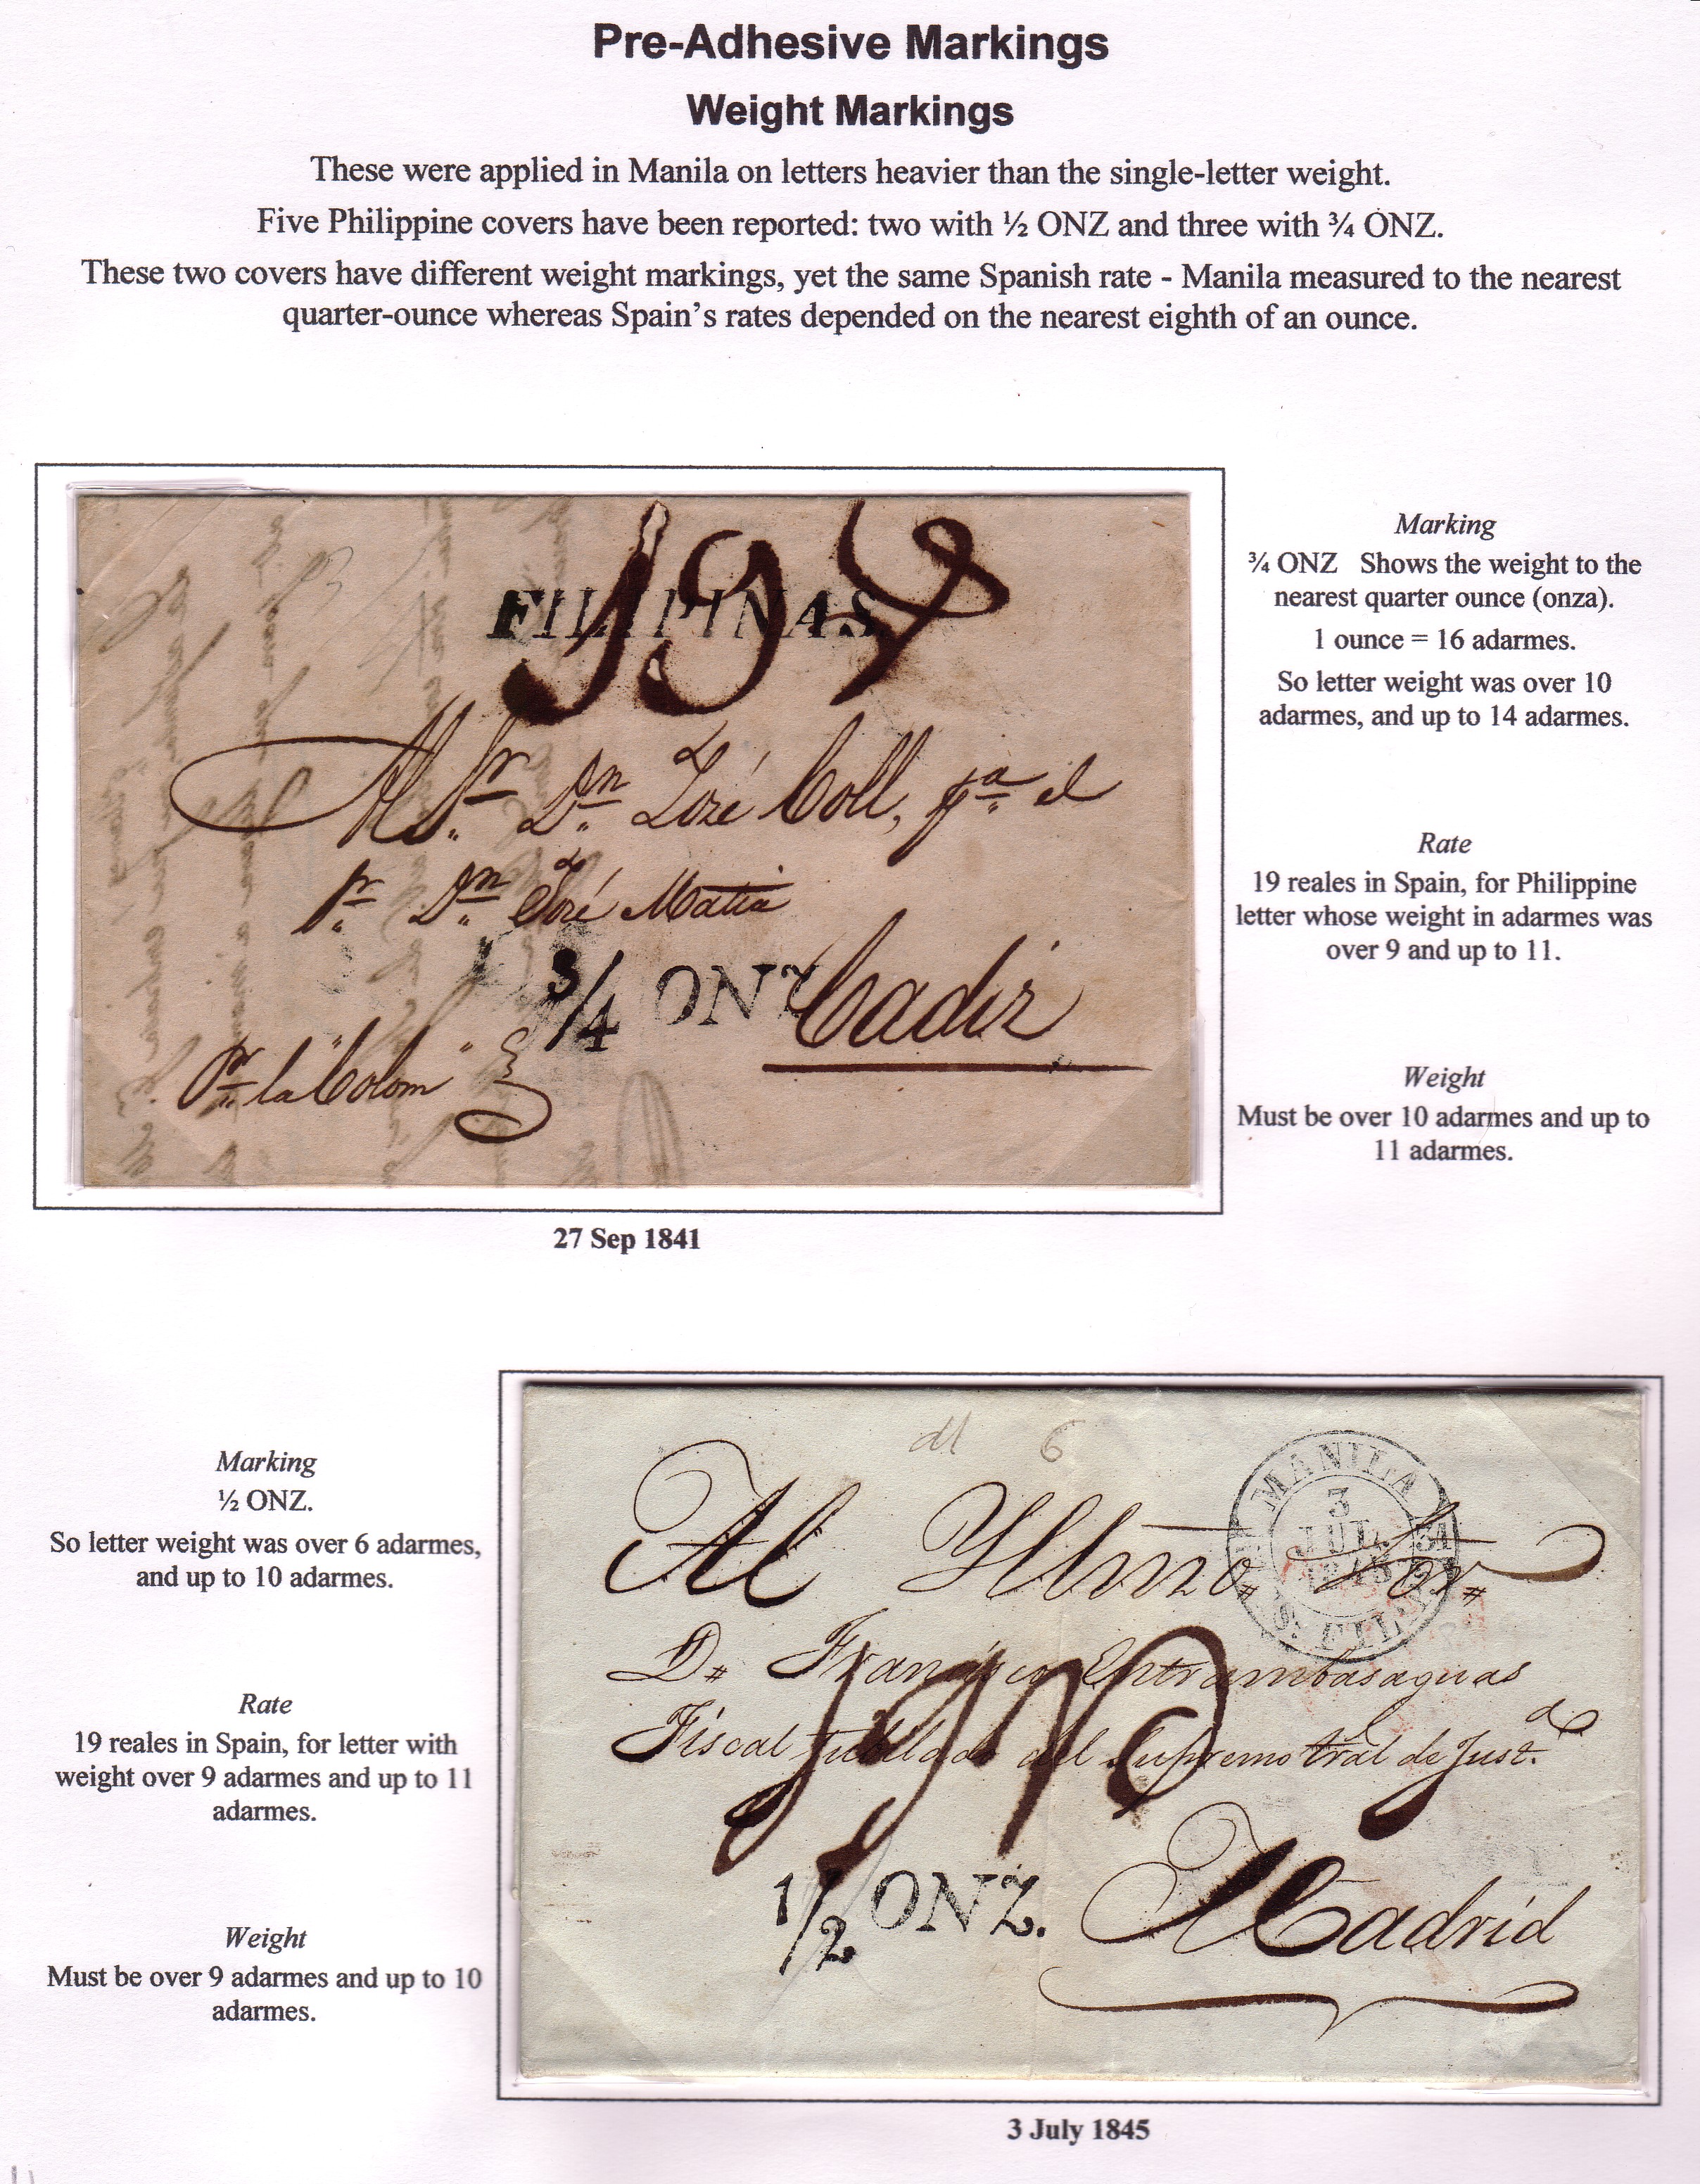 Pre-Adhesive Markings
Weight Markings
These were applied in Manila on letters heavier than the single-letter weight.
Five Philippine covers have been reported: two with ½ ONZ and three with ¾ ONZ.
These two covers have different weight markings, yet the same Spanish rate - Manila measured to the nearest
quarter-ounce whereas Spain's rates depended on the nearest eighth of an ounce.
19
FILIPINAS
Al Sr. Dn. José Coll, pa. el
Sr. Dn. José Matia
3/4 ONZ
Cadiz
Pr. la "Colom"
27 Sep 1841
Marking
¾ ONZ Shows the weight to the
nearest quarter ounce (onza).
1 ounce = 16 adarmes.
So letter weight was over 10
adarmes, and up to 14 adarmes.
Rate
19 reales in Spain, for Philippine
letter whose weight in adarmes was
over 9 and up to 11.
Weight
Must be over 10 adarmes and up to
11 adarmes.
Marking
½ ONZ.
So letter weight was over 6 adarmes,
and up to 10 adarmes.
Rate
19 reales in Spain, for letter with
weight over 9 adarmes and up to 11
adarmes.
Weight
Must be over 9 adarmes and up to 10
adarmes.
6
MANILA
3
JUL.
1845
Al Ylmo. Sor.
D. Francisco Entrambasaguas
Fiscal Jubilado del Supremo tral de Just.
19
1/2 ONZ.
Madrid
3 July 1845